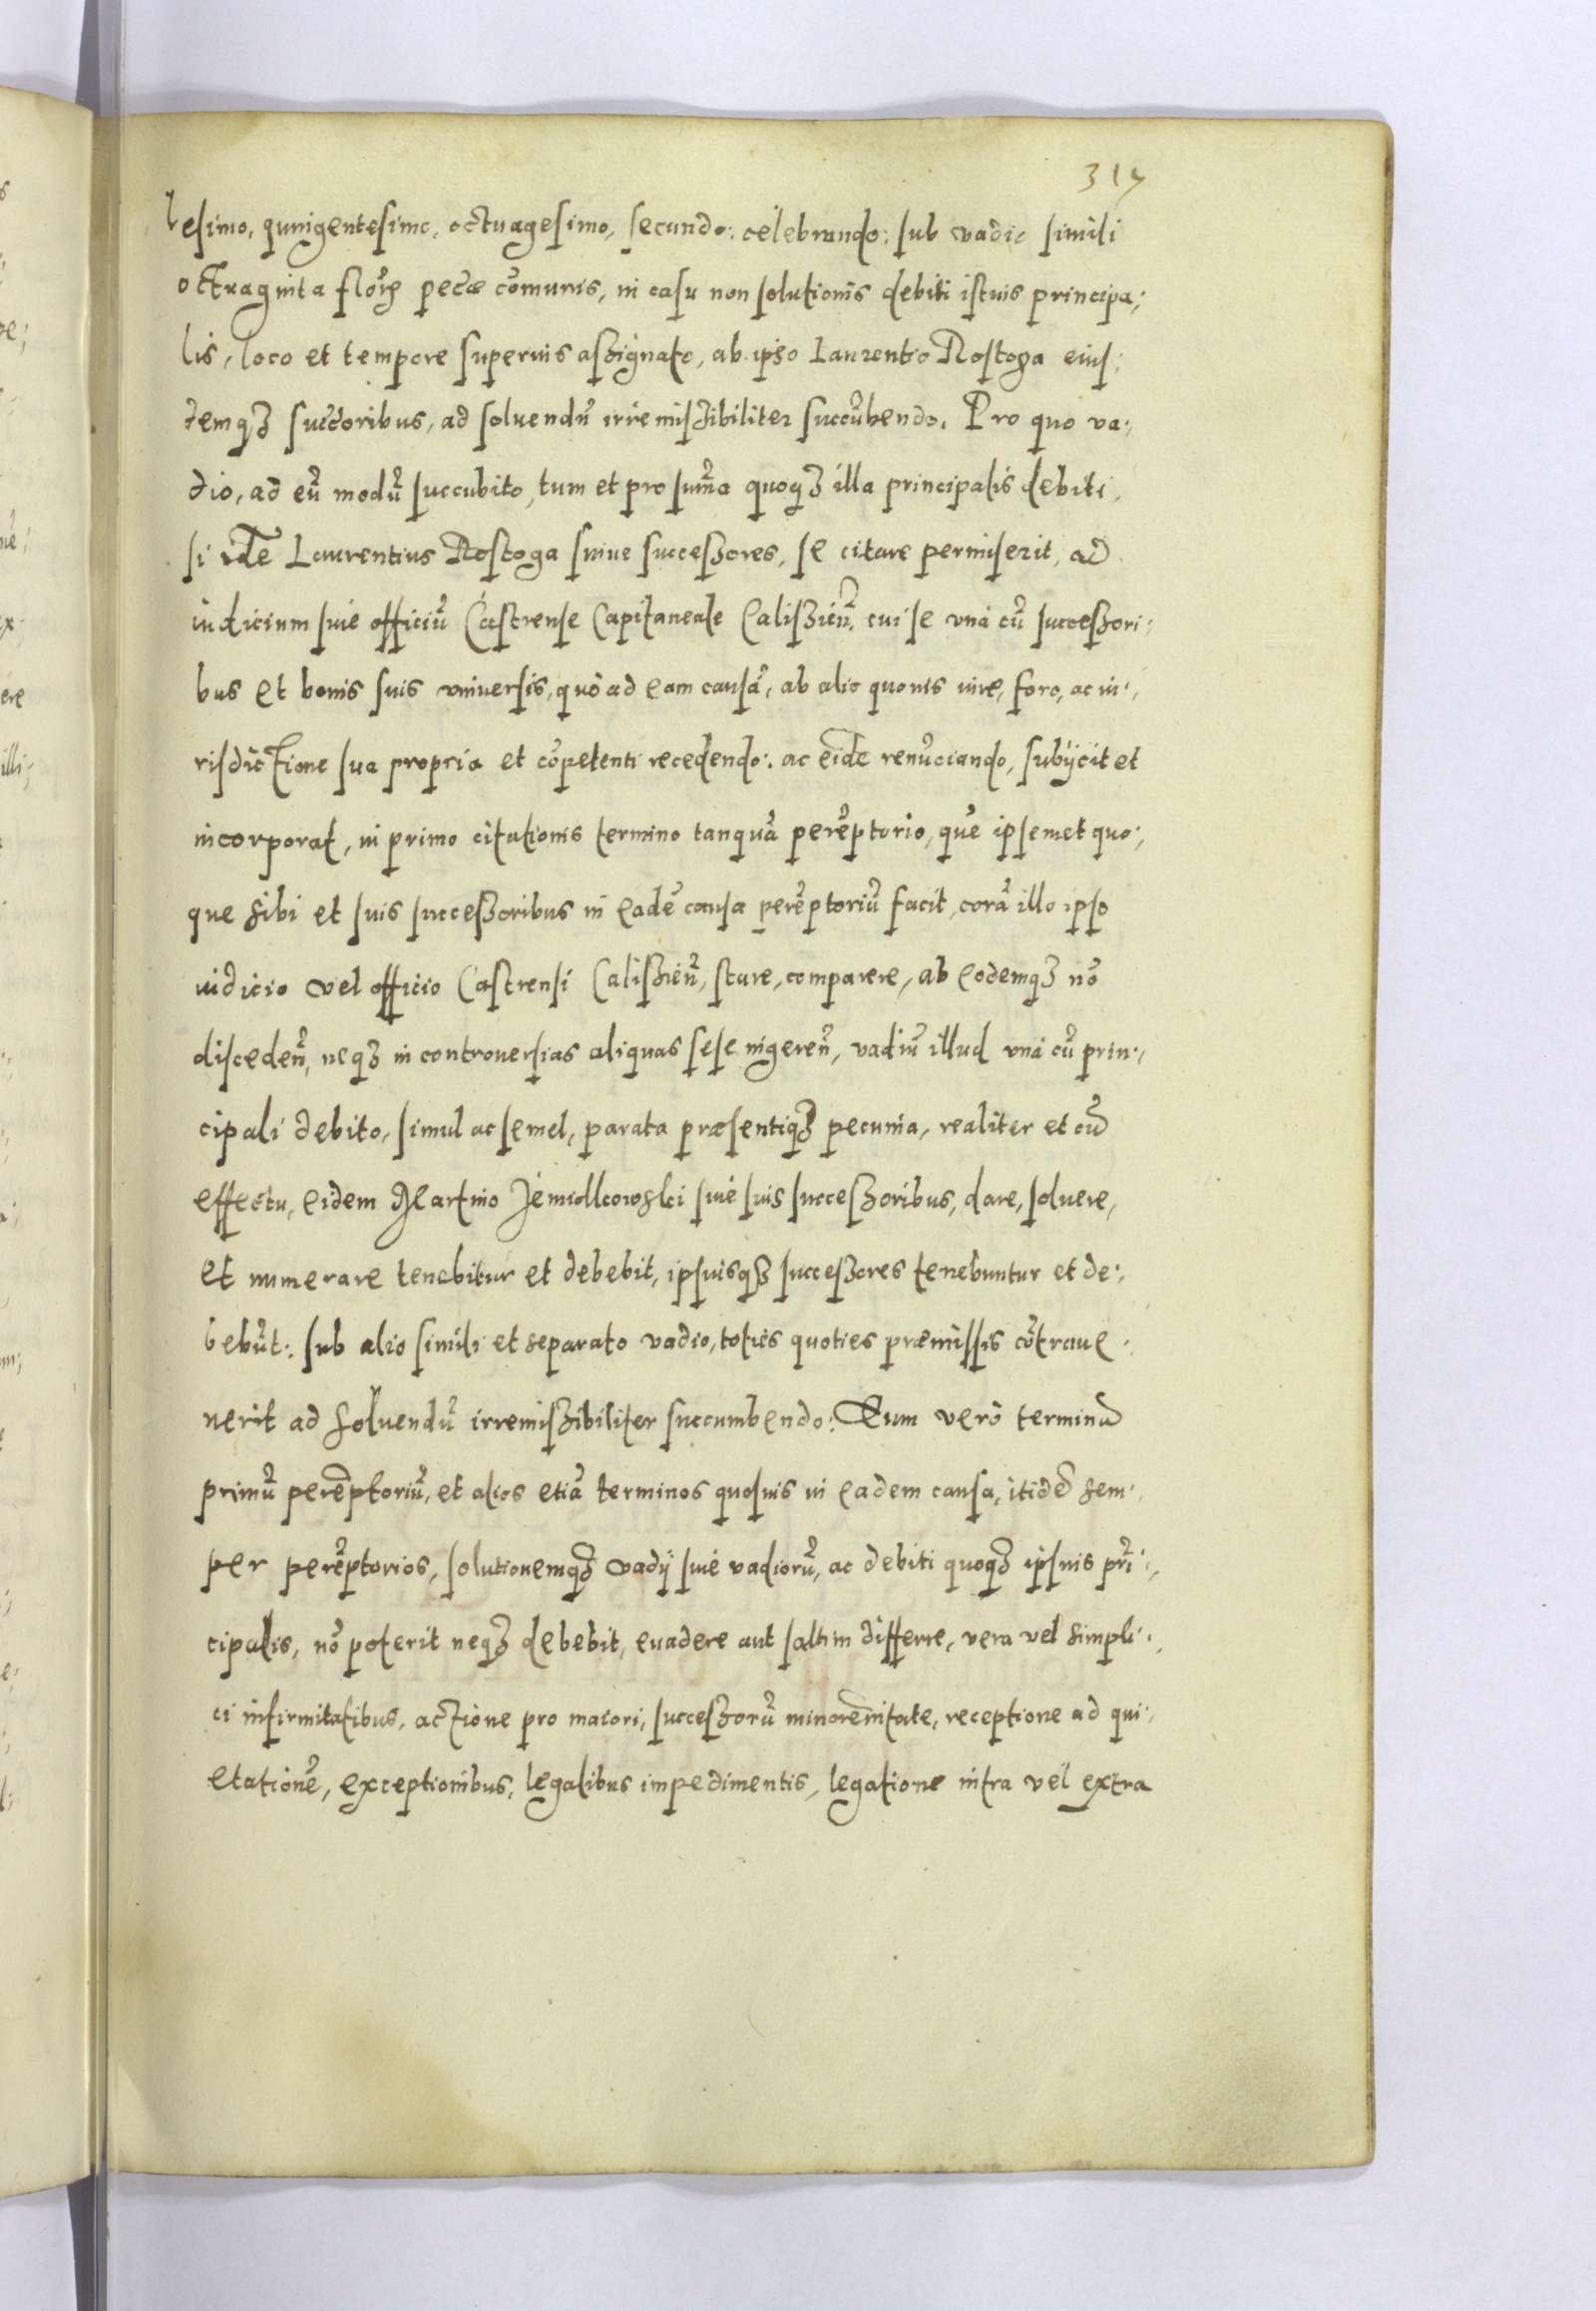 317
lesimo, quingentesimo, octuagesimo, secundo: celebrando: sub vadio simili
octuaginta flor̃ pecũe cõmunis, in casu non solutionis debiti istius principa:
lis, loco et tempore superius assignato, ab ipso Laurentio Rostoga eius:
demqꝫ succ̃oribus, ad soluendũ irremissibiliter succũbendo. Pro quo va:
dio, ad eũ modũ succubito, tum et pro sum̃a quoqꝫ illa principalis debiti,
si idẽ Laurentius Rostoga suiue successores, se citare permiserit, ad
iudicium siue officiũ Castrense Capitaneale Calissien̄. cui se vnà cũ successori:
bus et bonis suis vniuersis, quò ad eam causã, ab alio quouis iure, foro, ac iu:
risdictione sua propria et cõpetenti recedendo: ac eidẽ renũciando, subijcit et
incorporat, in primo citationis termino tanquã perẽptorio, quẽ ipsemet quo:
que sibi et suis successoribus in eadẽ causa perẽptoriũ facit, corã illo ipso
iudicio vel officio Castrensi Calissien̄, stare, comparere, ab eodemqꝫ nõ
disceden̄, neqꝫ in controuersias aliquas sese ingeren̄, vadiũ illud vnà cũ prin:
cipali debito, simul ac semel, parata præsentiqꝫ pecunia, realiter et cũ
effectu, eidem Martino Jemiolkowskі siue suis successoribus, dare, soluere,
et numerare tenebitur et debebit, ipsiusqꝫ successores tenebuntur et de:
bebũt: sub alio simili et separato vadio, toties quoties præmissis cõtraue:
nerit ad soluendũ irremissibiliter succumbendo: Eum verò terminũ
primũ perẽptoriũ, et alios etiã terminos quosuis in eadem causa, itidẽ sem:
per perẽptorios, solutionemqꝫ vadij siue vadiorũ, ac debiti quoqꝫ ipsius prĩ:
cipalis, nõ poterit neqꝫ debebit, euadere aut saltim differre, vera vel simpli:
ci infirmitatibus, actione pro maiori, successorũ minorẽnitate, receptione ad qui:
etationẽ, exceptionibus, legalibus impedimentis, legatione intra vel extra